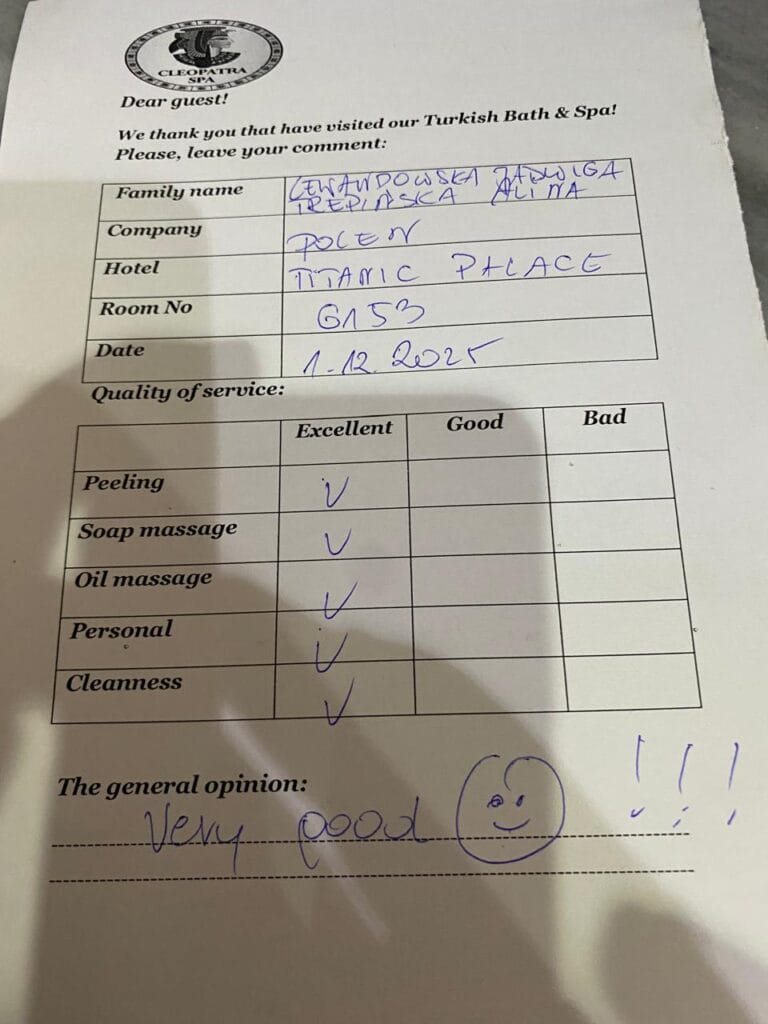 CLEOPATRA
SPA
Dear guest!
We thank you that have visited our Turkish Bath & Spa!
Please, leave your comment:
Family name LEWANDOWSKA JADWIGA
TREPIŃSKA ALINA
Company POLEN
Hotel TITANIC PALACE
Room No 6153
Date 1.12.2025
Quality of service:
Excellent Good Bad
Peeling V
Soap massage V
Oil massage V
Personal V
Cleanness V
The general opinion:
Very good !!!